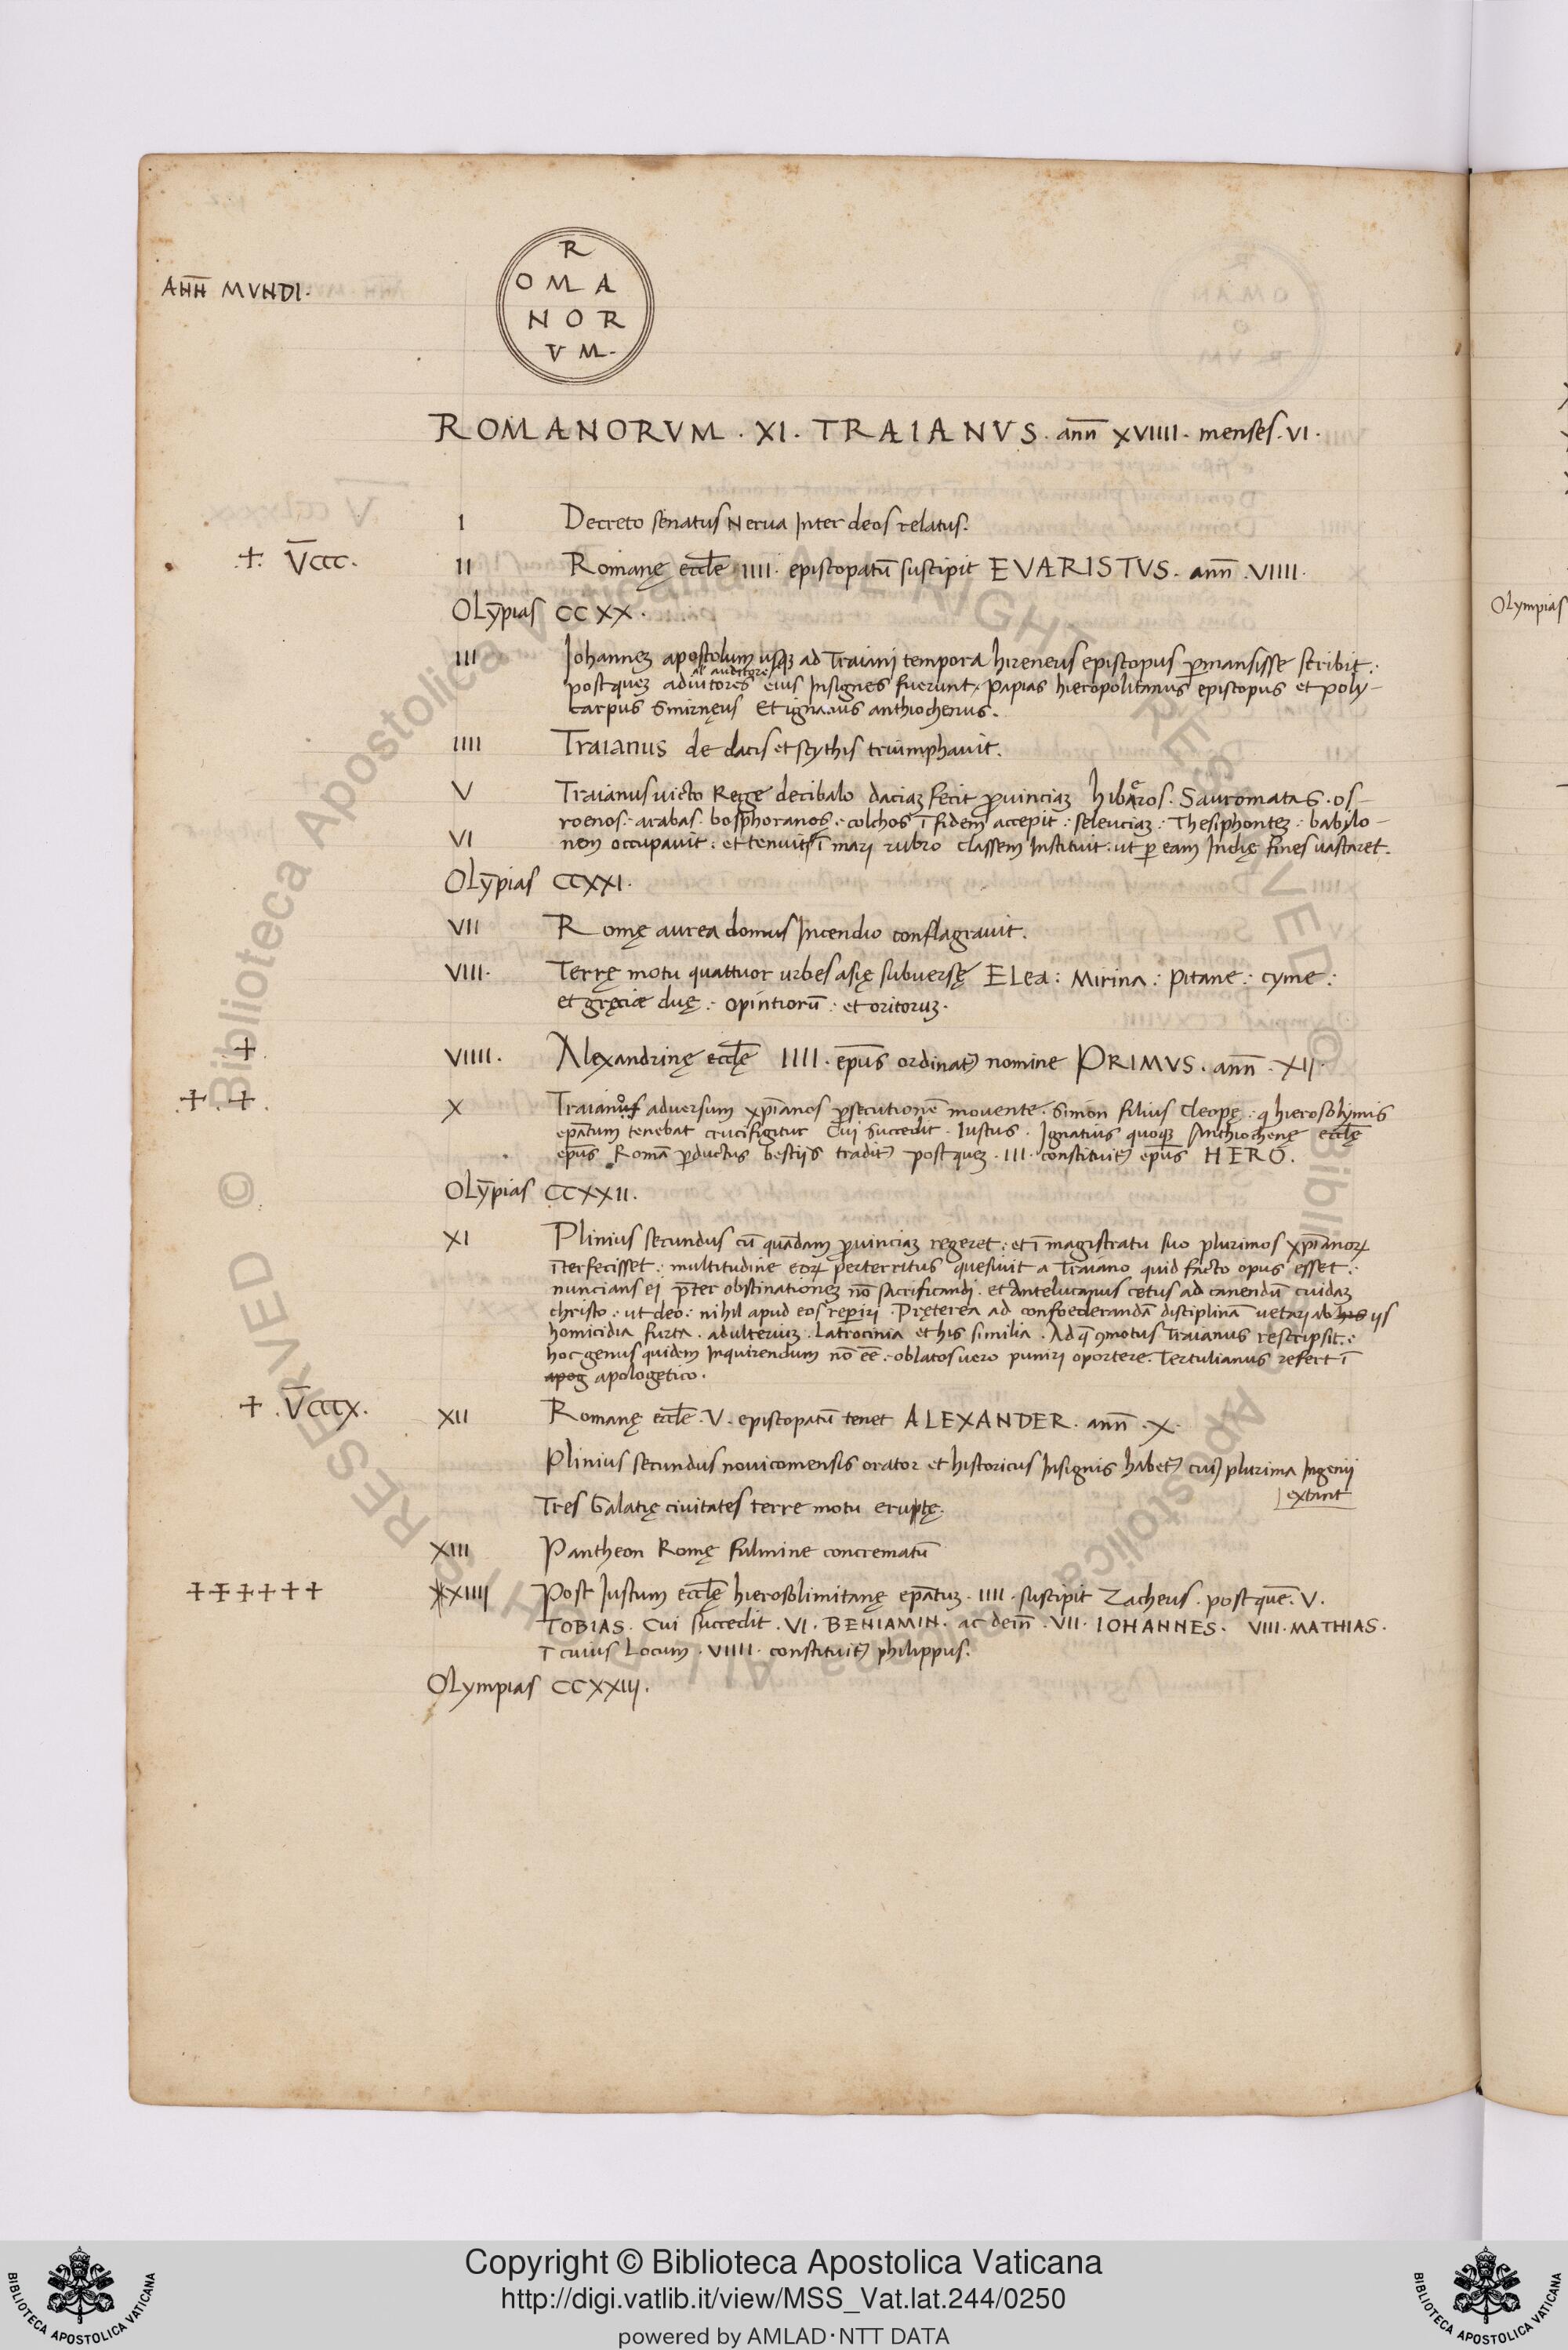 R
ANN MVNDI.
OMA
NOR
VM.
ROMANORVM . XI. TRAIANVS. ann̄ XVIIII. menses. VI.
I Decreto senatus Nerua Inter deos relatus.
.+. V̄ccc. II Romanę eccl̄e IIII. episcopatū suscipit EVARISTVS. ann̄ .VIIII.
OLȳpias CCXX.
III Iohannem apostolum usq; ad Traiani tempora hireneus episcopus p̱mansisse scribit:
al auditores
postquem aduitores eius Insignes fuerunt. Papias hieropolitanus episcopus et poly-
carpus Smirnęus Et ignatius anthiochenus.
IIII Traianus de dacis et scythis triumphauit.
V Traianus uicto Rege decibalo daciam fecit prouinciam hiberos. Sauromatas. os-
roenos: arabas. bosphoranos: colchos ī fidem accepit: seleuciam: Thesiphontem: babylo-
VI nem occupauit: et tenuit ī mari rubro classem Instituit. ut p̱ eam Indię fines uastaret.
OLȳpias CCXXI.
VII Romę aurea domus Incendio conflagrauit.
VIII. Terrę motu quattuor urbes asię subuersę ELea: Mirina: Pitane: cyme:
et gręcie duę: opintiorū: et oritorum.
+
VIIII. Alexandrinę eccl̄ę IIII. ep̄us ordinatꝰ nomine PRIMVS. ann̄ . XII.
.+.+. X Traianus aduersum xp̄ianos p̱secutionē mouente. Simon filius Cleopę: q hierosolymis
ep̄atum tenebat crucifigitur Cui succedit. Iustus. Ignatius quoque Anthiochenę eccl̄ę
ep̄us Romā p̱ductus bestiis traditꝰ postquem. III. constituitꝰ ep̄us HERO.
OLȳpias CCXXII.
XI Plinius secundus cū quādam prouinciam regeret: et ī magistratu suo plurimos xp̄ianoꝝ
īterfecisset: multitudine eoꝝ perterritus quesiuit a Traiano quid facto opus esset:
nuncians ei p̄ter obstinationem nō sacrificandi. et Antelucanus cetus ad canendū cuidam
christo: ut deo: nihil apud eos reperiri. Pręterea ad confoederandā disciplinā uetari ab his iis
homicidia furta. adulterium. Latrocinia et his similia. Ad q̄ ꝯmotus Traianus rescripsit:
hoc genus quidem Inquirendum nō eē: oblatos uero puniri oportere. Tertulianus refert ī
apog apologetico.
+ .V̄cccx. XII Romanę eccl̄e .V. episcopatū tenet ALEXANDER. ann̄ .X.
Plinius secundus nouicomensis orator et historicus Insignis habetꝰ cuiꝰ plurima Ingenii
extant
Tres Galatię ciuitates terre motu eruptę.
XIII Pantheon Romę fulmine concrematū
++++++ XIIII Post Iustum eccl̄ę hierosolimitanę ep̄atum. IIII. suscipit Zacheus. postquē. V.
TOBIAS. Cui succedit. VI. BENIAMIN. ac dein̄ .VII. IOHANNES. VIII. MATHIAS.
ī cuius Locum. VIIII. constituitꝰ philippus.
OLympias CCXXIII.
Olympias
© Biblioteca Apostolica Vaticana ALL RIGHTS RESERVED
© Biblioteca Apostolica Vaticana ALL RIGHTS RESERVED
Copyright © Biblioteca Apostolica Vaticana
http://digi.vatlib.it/view/MSS_Vat.lat.244/0250
powered by AMLAD·NTT DATA
BIBLIOTECA APOSTOLICA VATICANA
BIBLIOTECA APOSTOLICA VATICANA